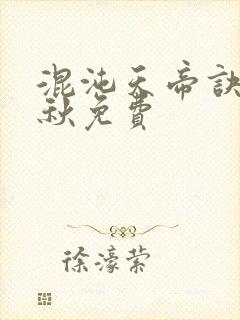 混沌天帝訣
秋免費
徐濠縈